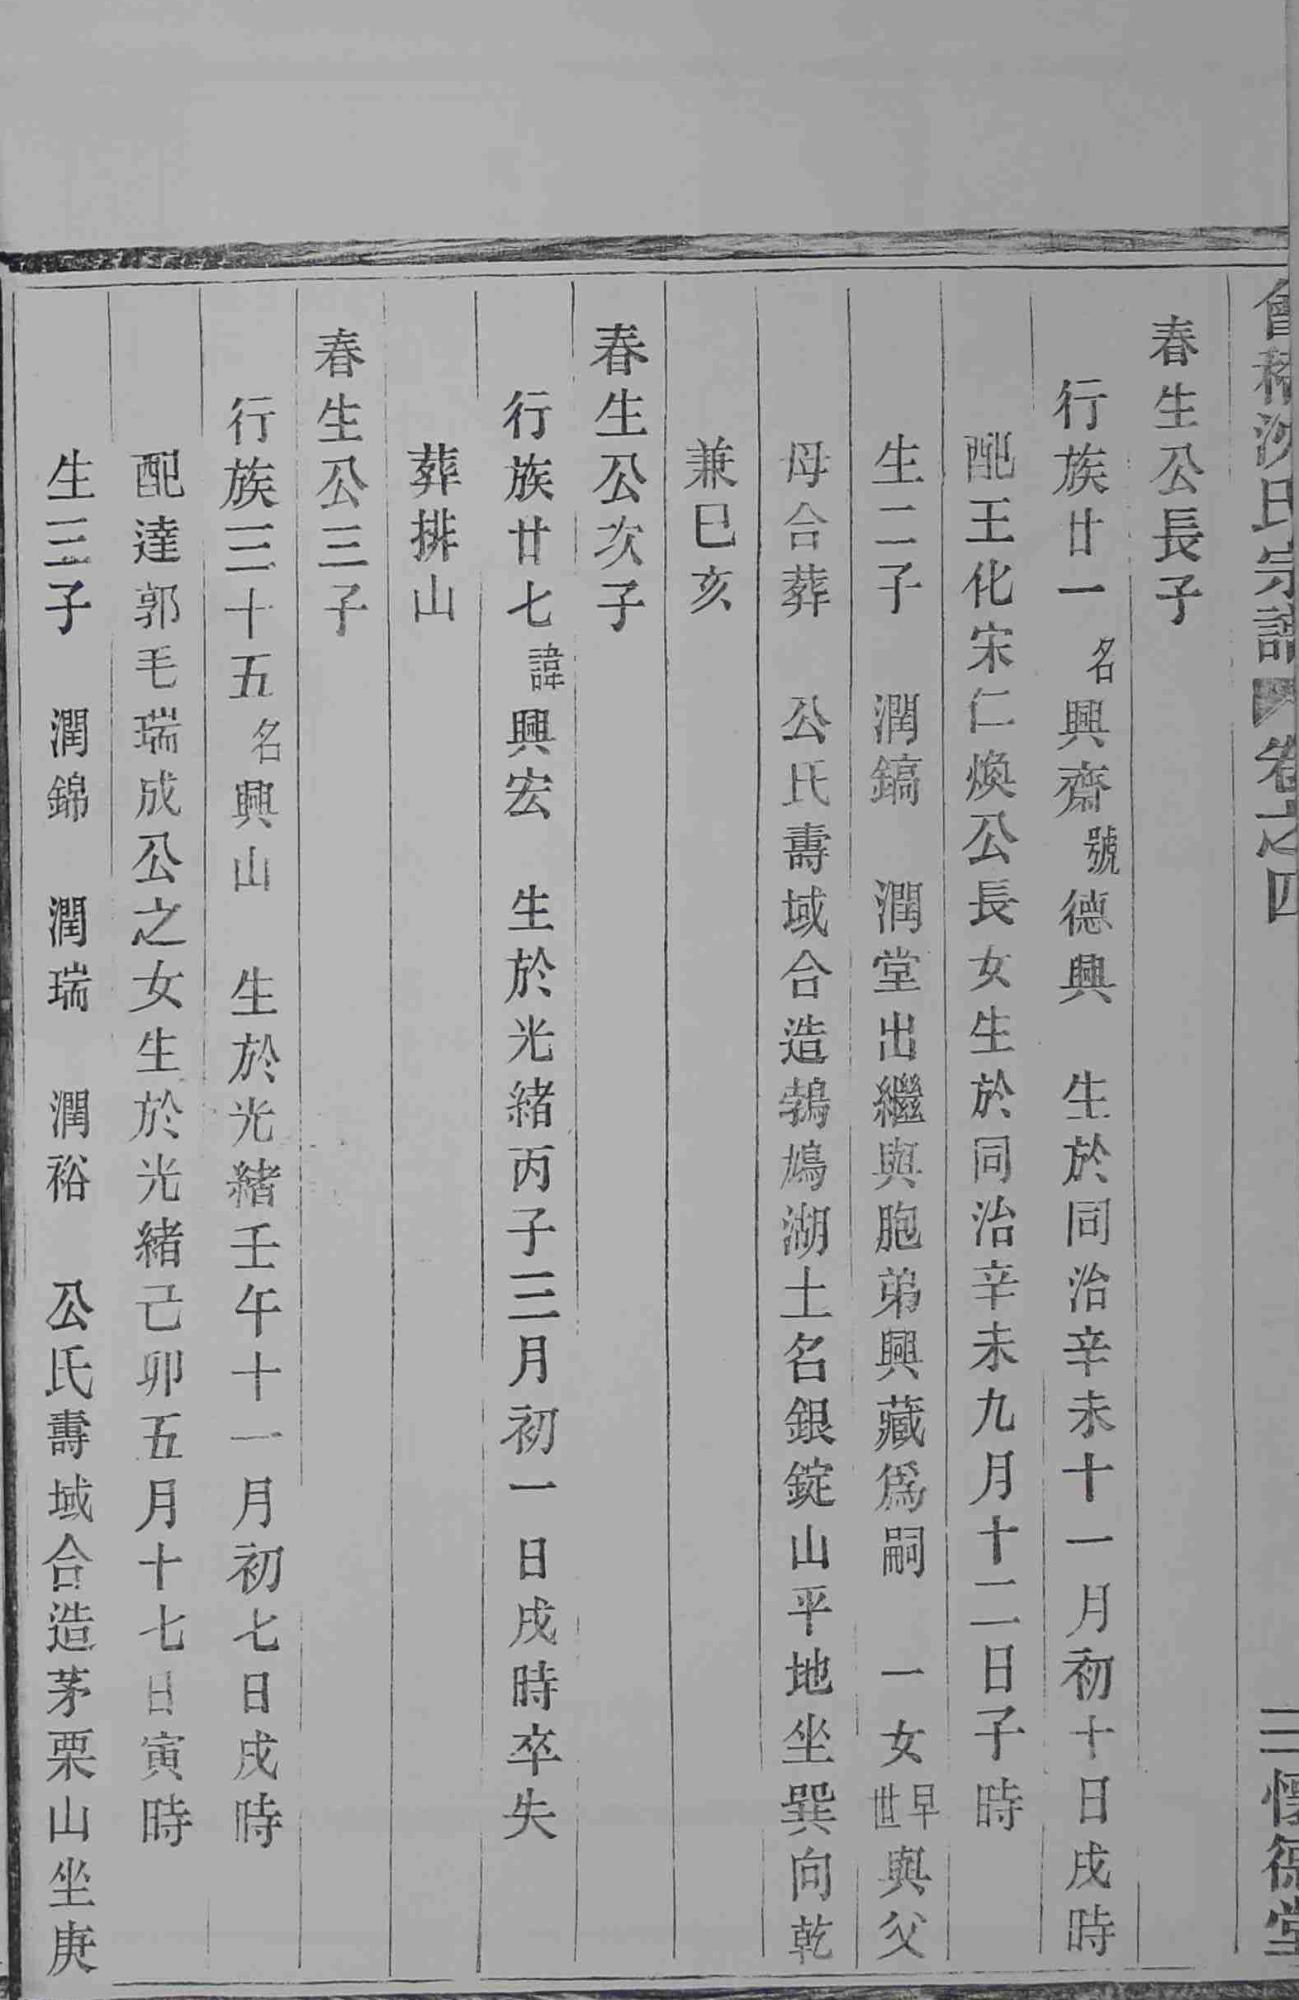 會稽沙氏宗譜 卷之四 三 懷德堂
春生公長子
行族廿一 名興齋 號德興 生於同治辛未十一月初十日戌時
配王化宋仁煥公長女生於同治辛未九月十二日子時
生二子 潤鎬 潤堂出繼與胞弟興藏爲嗣 一女早世與父
母合葬 公氏壽域合造鵓鳩湖土名銀錠山平地坐巽向乾
兼巳亥
春生公次子
行族廿七 諱興宏 生於光緒丙子三月初一日戌時卒失
葬排山
春生公三子
行族三十五 名興山 生於光緒壬午十一月初七日戌時
配達郭毛瑞成公之女生於光緒己卯五月十七日寅時
生三子 潤錦 潤瑞 潤裕 公氏壽域合造茅栗山坐庚